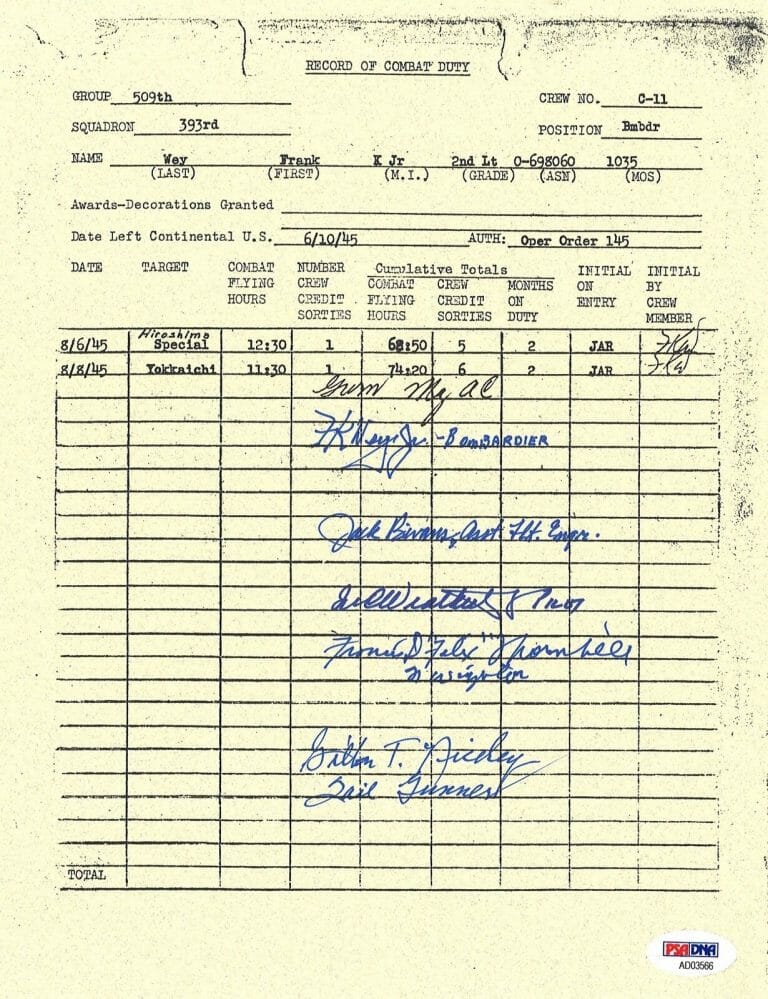 RECORD OF COMBAT DUTY
GROUP 509th CREW NO. C-11
SQUADRON 393rd POSITION Bmbdr
NAME Wey Frank K Jr 2nd Lt 0-698060 1035
(LAST) (FIRST) (M.I.) (GRADE) (ASN) (MOS)
Awards-Decorations Granted
Date Left Continental U.S. 6/10/45 AUTH: Oper Order 145
DATE TARGET COMBAT FLYING HOURS NUMBER CREW CREDIT SORTIES Cumulative Totals COMBAT FLYING HOURS CREW CREDIT SORTIES MONTHS ON DUTY INITIAL ON ENTRY INITIAL BY CREW MEMBER
Hiroshima
8/6/45 Special 12:30 1 68:50 5 2 JAR FKW
8/8/45 Yokkaichi 11:30 1 74:20 6 2 JAR FKW
AC
FK Wey Jr. - BOMBARDIER
Jack Bivans, Asst. Flt. Engr.
Pilot
Francis D "Felix" Thornhill
Navigator
Gillon T. Niceley
Tail Gunner
TOTAL
PSA DNA
AD03566